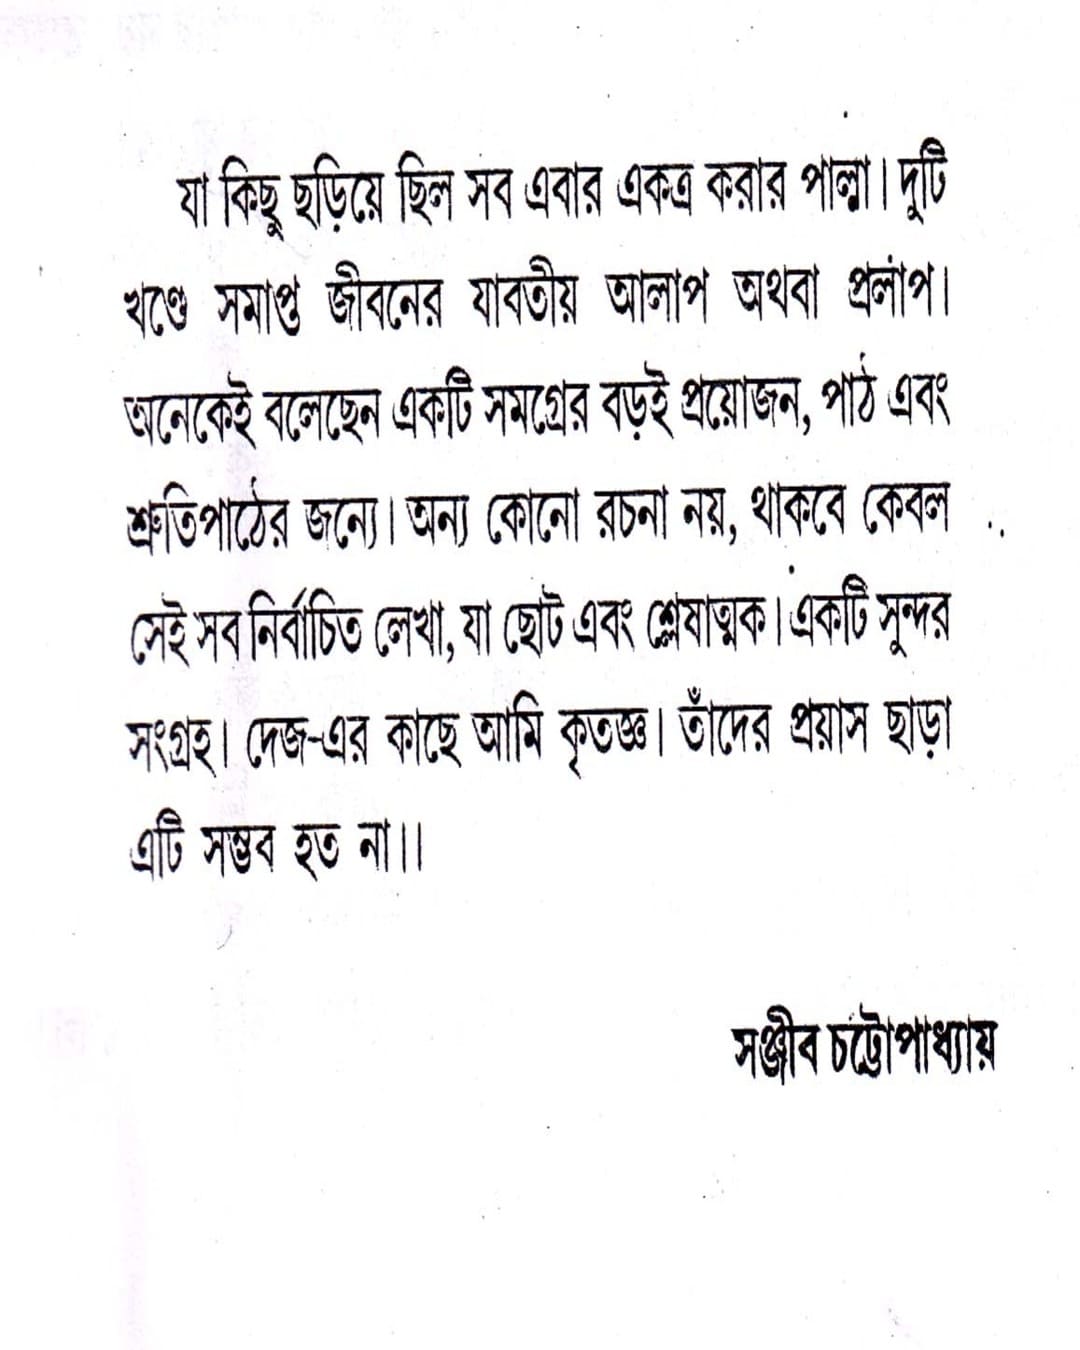 যা কিছু ছড়িয়ে ছিল সব এবার একত্র করার পাল্লা। দুটি
খণ্ডে সমাপ্ত জীবনের যাবতীয় আলাপ অথবা প্রলাপ।
অনেকেই বলেছেন একটি সমগ্রের বড়ই প্রয়োজন, পাঠ এবং
শ্রুতিপাঠের জন্যে। অন্য কোনো রচনা নয়, থাকবে কেবল
সেই সব নির্বাচিত লেখা, যা ছোট এবং শ্লেষাত্মক। একটি সুন্দর
সংগ্রহ। দেজ-এর কাছে আমি কৃতজ্ঞ। তাঁদের প্রয়াস ছাড়া
এটি সম্ভব হত না।।
সঞ্জীব চট্টোপাধ্যায়